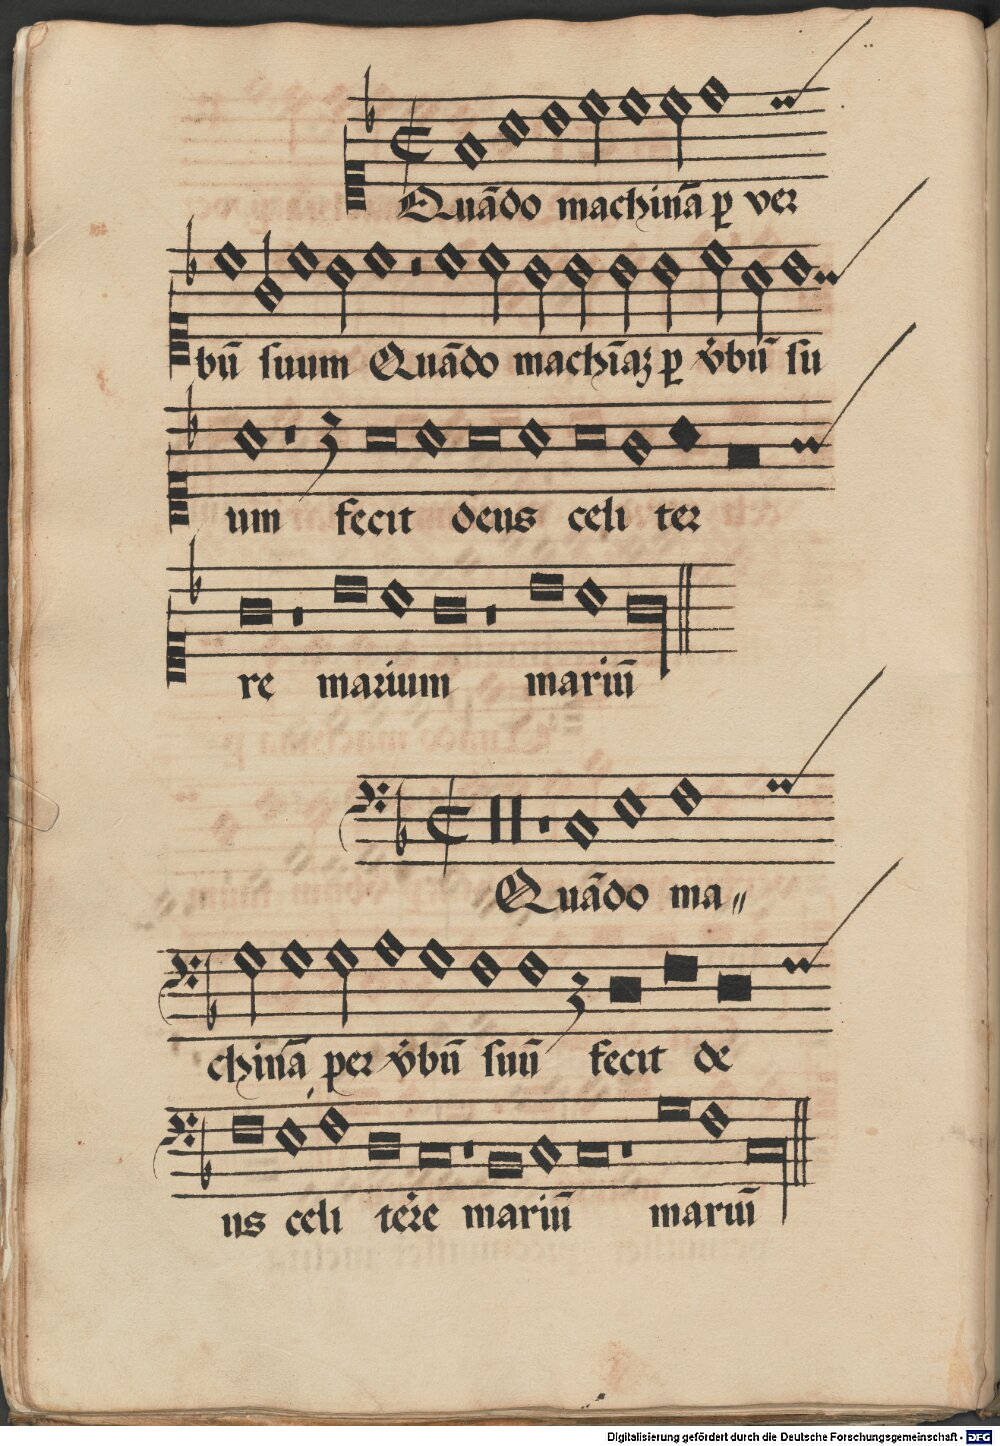 Quādo machinā ꝑ ver
bū suum Quādo machīaꝫ ꝑ v̇bū su
um fecit deus celi ter
re marium mariū
Quādo ma〃
chinā per v̇bū suū fecit de
us celi terͤre mariū mariū
Digitalisierung gefördert durch die Deutsche Forschungsgemeinschaft - DFG